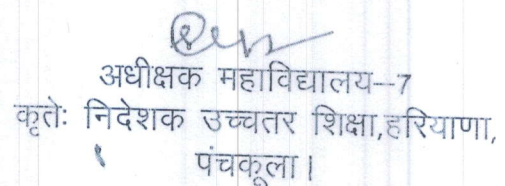 अधीक्षक महाविद्यालय--7
कृतेः निदेशक उच्चतर शिक्षा,हरियाणा,
पंचकूला।